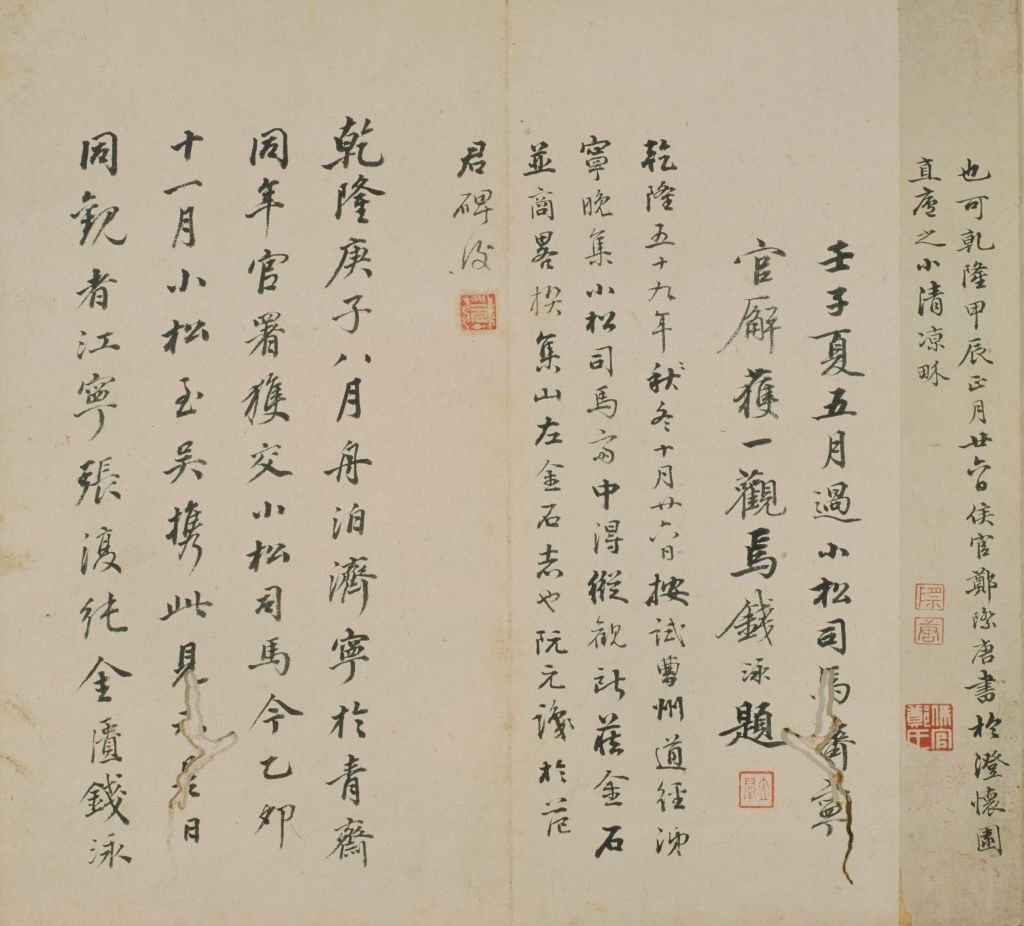 也可乾隆甲辰正月廿六日侯官鄭際唐書於澄懷園
直廬之小清涼𤱶
際唐
侯官鄭氏
壬子夏五月過小松司馬濟寧
官廨獲一觀焉錢泳題
乾隆五十九年秋冬十月廿六日按試曹州道經濟
寧晚集小松司馬齋中得縱觀所藏金石
並商畧桉集山左金石志也阮元識於范
君碑後
乾隆庚子八月舟泊濟寧於青齋
同年官署獲交小松司馬今乙卯
十一月小松至吳攜此見示是日
同觀者江寧張復純金匱錢泳